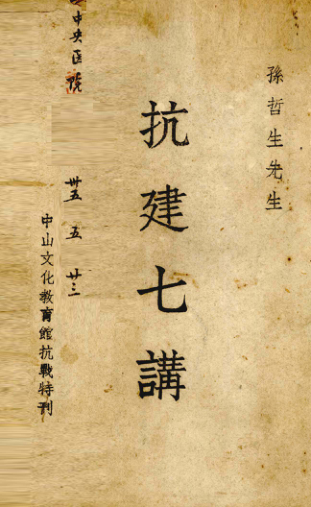 孫哲生先生
抗建七講
中央医院
卅五 五 廿三
中山文化敎育館抗戰特刊